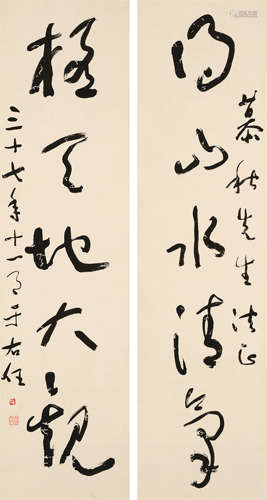 得山水清氣
慕秋先生法正
極天地大觀
三十七年十一月于右任